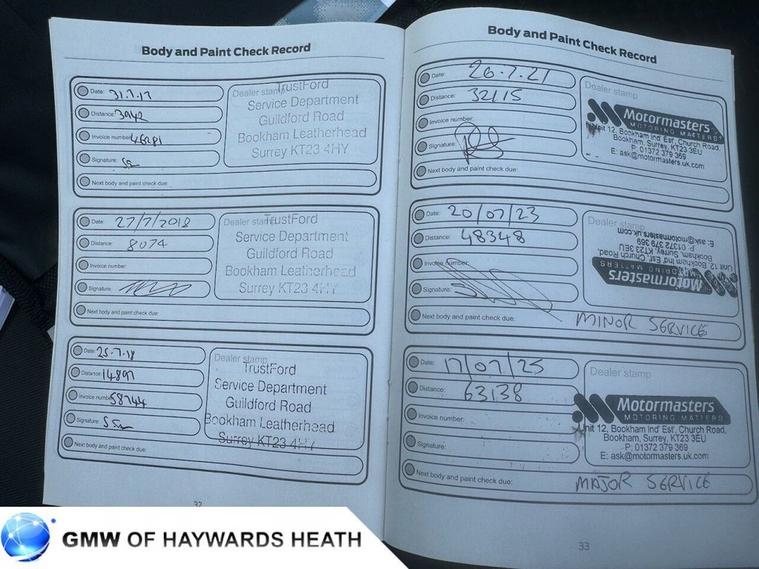 Body and Paint Check Record
Date: 31.7.17
Distance: 3942
Invoice number:
Signature:
Next body and paint check due:
Dealer stamp
TrustFord
Service Department
Guildford Road
Bookham Leatherhead
Surrey KT23 4HY
Date: 27/7/2018
Distance: 8074
Invoice number:
Signature:
Next body and paint check due:
Dealer stamp
TrustFord
Service Department
Guildford Road
Bookham Leatherhead
Surrey KT23 4HY
Date: 25.7.18
Distance: 14897
Invoice number: 58744
Signature:
Next body and paint check due:
Dealer stamp
TrustFord
Service Department
Guildford Road
Bookham Leatherhead
Surrey KT23 4HY
32
Body and Paint Check Record
Date: 26.7.21
Distance: 32115
Invoice number:
Signature:
Next body and paint check due:
Dealer stamp
Motormasters
MOTORING MATTERS
Unit 12, Bookham Ind' Est, Church Road,
Bookham, Surrey, KT23 3EU
P: 01372 379 369
E: ask@motormasters.uk.com
Date: 20/07/23
Distance: 48348
Invoice number:
Signature:
Next body and paint check due: MINOR SERVICE
Dealer stamp
Motormasters
MOTORING MATTERS
Unit 12, Bookham Ind' Est, Church Road,
Bookham, Surrey, KT23 3EU
P: 01372 379 369
E: ask@motormasters.uk.com
Date: 17/07/25
Distance: 63138
Invoice number:
Signature:
Next body and paint check due: MAJOR SERVICE
Dealer stamp
Motormasters
MOTORING MATTERS
Unit 12, Bookham Ind' Est, Church Road,
Bookham, Surrey, KT23 3EU
P: 01372 379 369
E: ask@motormasters.uk.com
33
GMW OF HAYWARDS HEATH